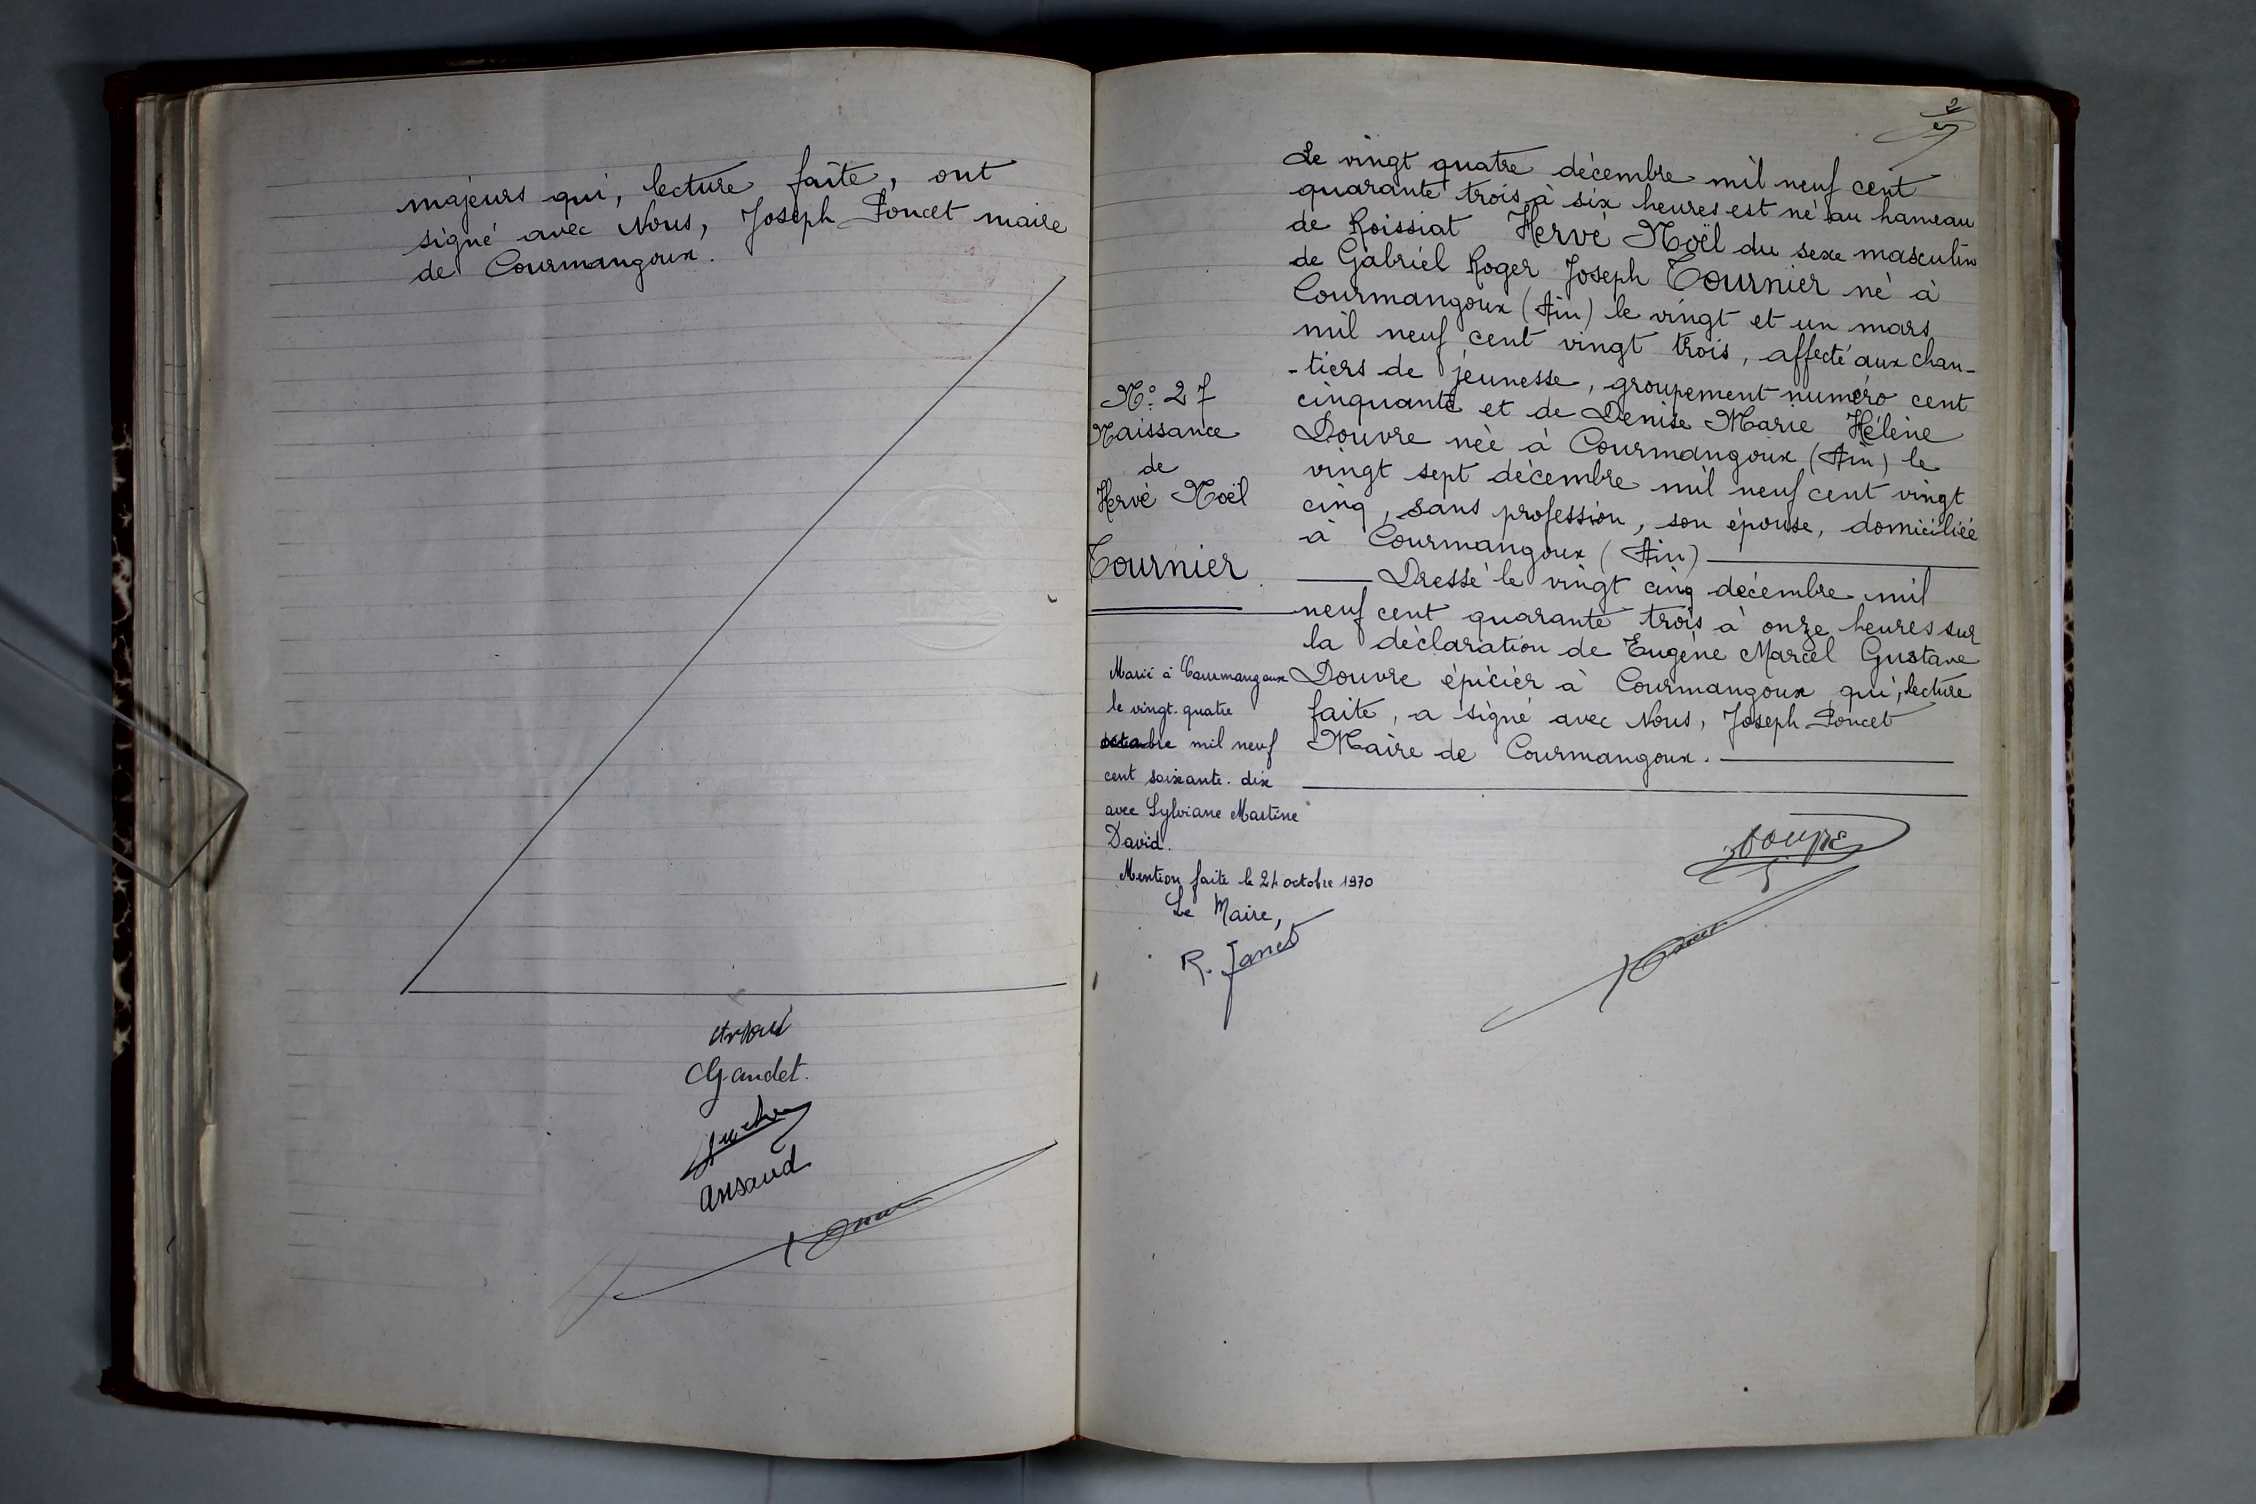 majeurs qui, lecture faite, ont
signé avec Nous, Joseph Poncet maire
de Courmangoux.
Gaudet.
Arsaud
2
Le vingt quatre décembre mil neuf cent
quarante trois à six heures est né au hameau
de Roissiat Hervé Noël du sexe masculin
de Gabriel Roger Joseph Tournier né à
Courmangoux (Ain) le vingt et un mars
mil neuf cent vingt trois, affecté aux chan-
-tiers de jeunesse, groupement numéro cent
cinquante et de Denise Marie Hélène
Douvre née à Courmangoux (Ain) le
vingt sept décembre mil neuf cent vingt
cinq, sans profession, son épouse, domiciliée
à Courmangoux (Ain)
Dressé le vingt cinq décembre mil
neuf cent quarante trois à onze heures sur
la déclaration de Eugène Marcel Gustave
Douvre épicier à Courmangoux qui, lecture
faite, a signé avec Nous, Joseph Poncet
Maire de Courmangoux.
Douvre
No: 27
Naissance
de
Hervé Noël
Tournier
Marié à Courmangoux
le vingt-quatre
octobre mil neuf
cent soixante-dix
avec Sylviane Martine
David.
Mention faite le 24 octobre 1970
Le Maire,
R. Janet